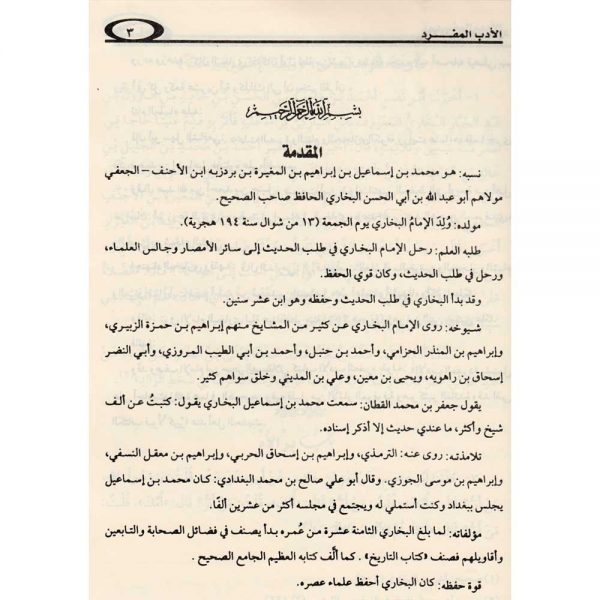 الأدب المفرد
٣
بسم الله الرحمن الرحيم
المقدمة
نسبه: هو محمد بن إسماعيل بن إبراهيم بن المغيرة بن بردزبه ابن الأحنف – الجعفي
مولاهم أبو عبد الله بن أبي الحسن البخاري الحافظ صاحب الصحيح.
مولده: وُلِدَ الإمامُ البخاري يوم الجمعة (١٣ من شوال سنة ١٩٤ هجرية).
طلبه العلم: رحل الإمام البخاري في طلب الحديث إلى سائر الأمصار وجالس العلماء،
ورحل في طلب الحديث، وكان قوي الحفظ.
وقد بدأ البخاري في طلب الحديث وحفظه وهو ابن عشر سنين.
شيوخه: روى الإمام البخاري عن كثير من المشايخ منهم إبراهيم بن حمزة الزبيري،
وإبراهيم بن المنذر الحزامي، وأحمد بن حنبل، وأحمد بن أبي الطيب المروزي، وأبي النضر
إسحاق بن راهويه، ويحيى بن معين، وعلي بن المديني وخلق سواهم كثير.
يقول جعفر بن محمد القطان: سمعت محمد بن إسماعيل البخاري يقول: كتبتُ عن ألف
شيخ وأكثر، ما عندي حديث إلا أذكر إسناده.
تلامذته: روى عنه: الترمذي، وإبراهيم بن إسحاق الحربي، وإبراهيم بن معقل النسفي،
وإبراهيم بن موسى الجوزي. وقال أبو علي صالح بن محمد البغدادي: كان محمد بن إسماعيل
يجلس ببغداد وكنت أستملي له ويجتمع في مجلسه أكثر من عشرين ألفًا.
مؤلفاته: لما بلغ البخاري الثامنة عشرة من عُمره بدأ يصنف في فضائل الصحابة والتابعين
وأقاويلهم فصنف «كتاب التاريخ» . كما ألَّف كتابه العظيم الجامع الصحيح .
قوة حفظه: كان البخاري أحفظ علماء عصره.